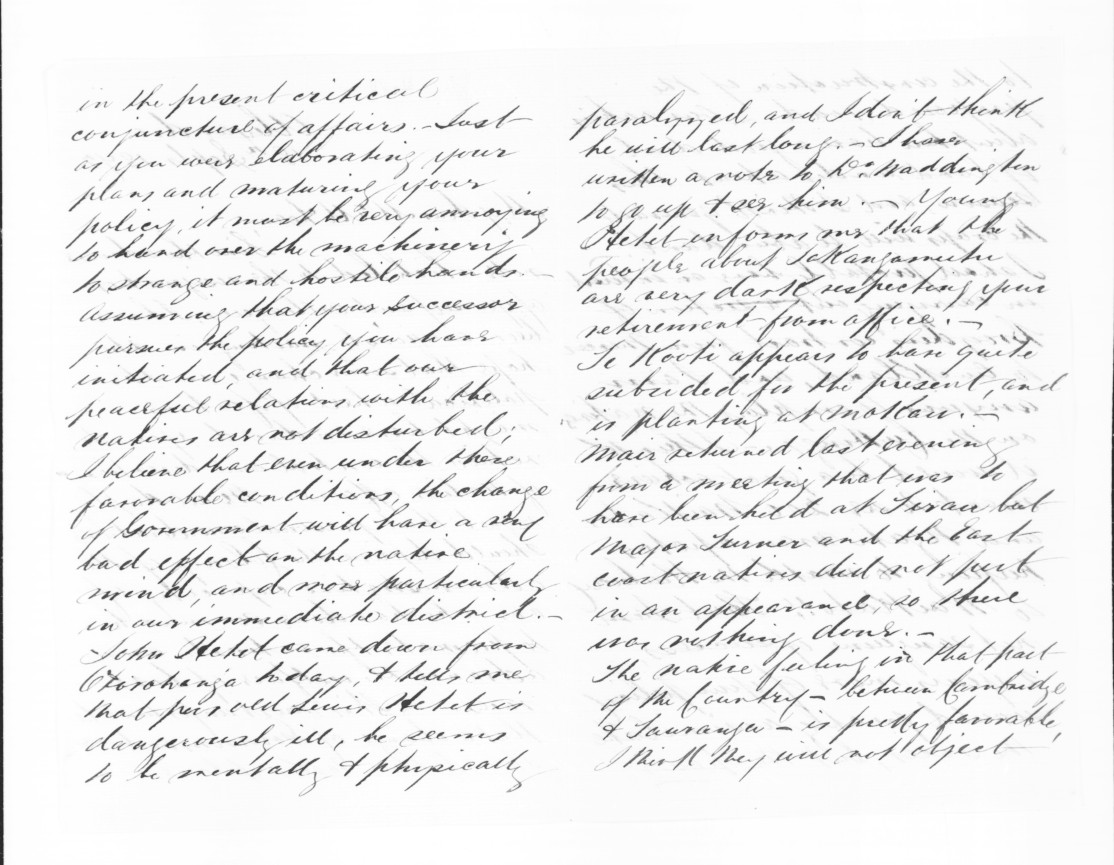 in the present critical
conjuncture of affairs. - Just
as you were elaborating your
plans and maturing your
policy, it must be very annoying
to hand over the machinery
to strange and hostile hands. -
Assuming that your successor
pursues the policy you have
initiated, and that our
peaceful relations with the
natives are not disturbed;
I believe that even under these
favorable conditions, the change
of Government will have a very
bad effect on the native
mind, and more particularly
in our immediate district. -
John Hetet came down from
Otorohanga today, & tells me
that poor old Lewis Hetet is
dangerously ill, he seems
to be mentally & physically
paralyzed, and I don't think
he will last long. - I have
written a note to Dr. Waddington
to go up & see him. - Young
Hetet informs me that the
people about Tokangamutu
are very dark respecting your
retirement from office. -
Te Kooti appears to have quite
subsided for the present, and
is planting at Mokau. -
Mair returned last evening
from a meeting that was to
have been held at Tirau but
Major Turner and the East
coast natives did not put
in an appearance, so there
was nothing done. -
The native feeling in that part
of the Country - between Cambridge
& Tauranga - is pretty favorable,
I think they will not object